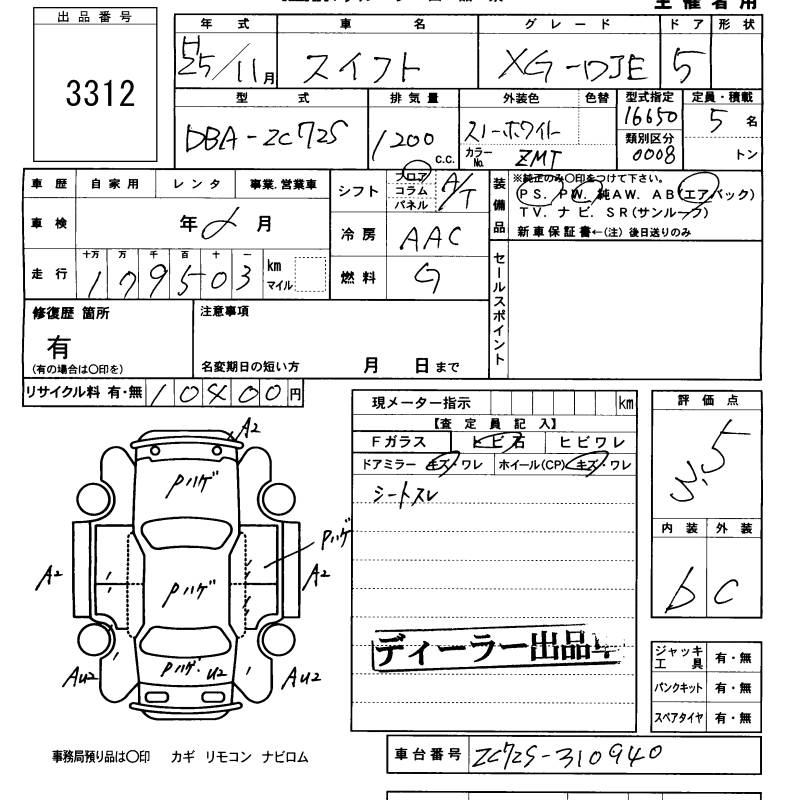 主催者用
出品番号
3312
年式 車名 グレード ドア 形状
H25/11月 スイフト XG-DJE 5
型式 排気量 外装色 色替 型式指定 定員・積載
DBA-ZC72S 1200 c.c. スノーホワイト 16650 5名
カラーNo. ZMT 類別区分 0008 トン
車歴 自家用 レンタ 事業.営業車
シフト フロア コラム パネル A/T
装備品
※純正のみ○印をつけて下さい。
PS. PW. 純AW. AB(エアバック)
TV. ナビ. SR(サンルーフ)
新車保証書←(注) 後日送りのみ
車検 年 月
冷房 AAC
走行 十万 万 千 百 十 一
179503 km マイル
燃料 G
セールスポイント
修復歴 箇所
有
(有の場合は○印を)
注意事項
名変期日の短い方 月 日まで
リサイクル料 有・無 10400円
現メーター指示 km
【査定員記入】
Fガラス トビ石 ヒビワレ
ドアミラー キズ・ワレ ホイール(CP) キズ・ワレ
シートスレ
評価点
3.5
内装 外装
b C
A2
Pハゲ
Pハゲ
A2
Pハゲ
A2
Pハゲ・U2
AU2
AU2
ディーラー出品車
ジャッキ工具 有・無
パンクキット 有・無
スペアタイヤ 有・無
事務局預り品は○印 カギ リモコン ナビロム
車台番号 ZC72S-310940